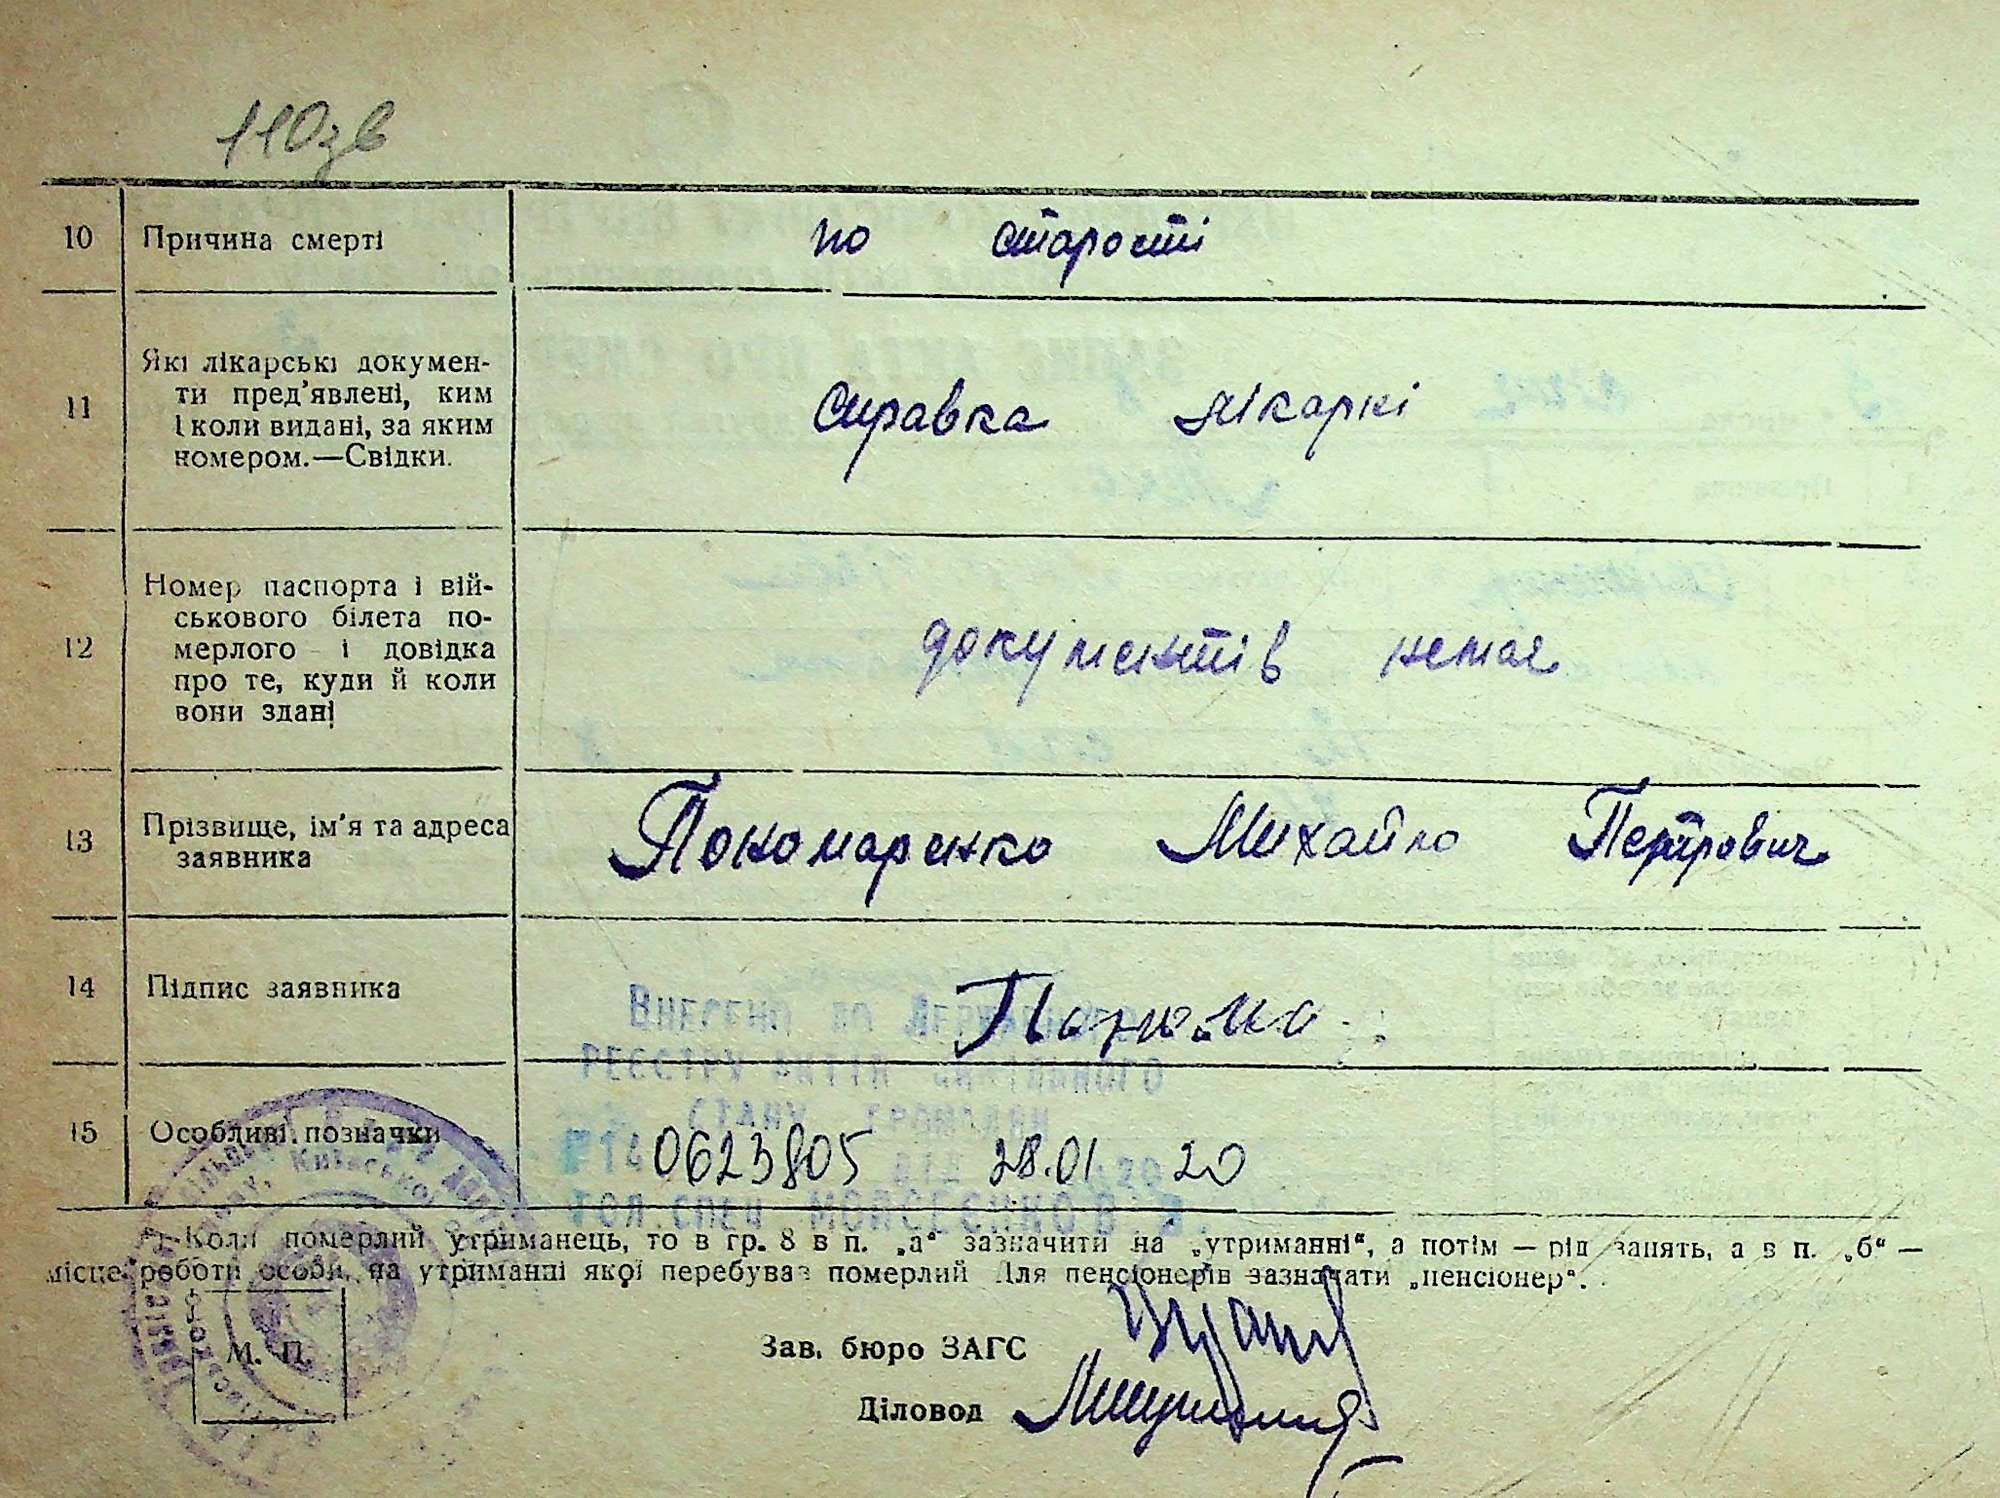 110зв
10 Причина смерті по старості
11 Які лікарські докумен-
ти пред'явлені, ким
і коли видані, за яким
номером.—Свідки.
справка лікаркі
12 Номер паспорта і вій-
ськового білета по-
мерлого і довідка
про те, куди й коли
вони здані
документів немає
13 Прізвище, ім'я та адреса
заявника
Пономаренко Михайло Петрович
14 Підпис заявника
Внесено до Державного
реєстру актів цивільного
стану громадян
15 Особливі позначки
0623805 від 28.01 2020
гол.спец Мойсеєнко В.
*) Коли померлий утриманець, то в гр. 8 в п. „а“ зазначити на „утриманні“, а потім — рід занять, а в п. „б“ —
місце роботи особи, на утриманні якої перебував померлий Для пенсіонерів зазначати „пенсіонер“.
М. П.
Зав. бюро ЗАГС
Діловод